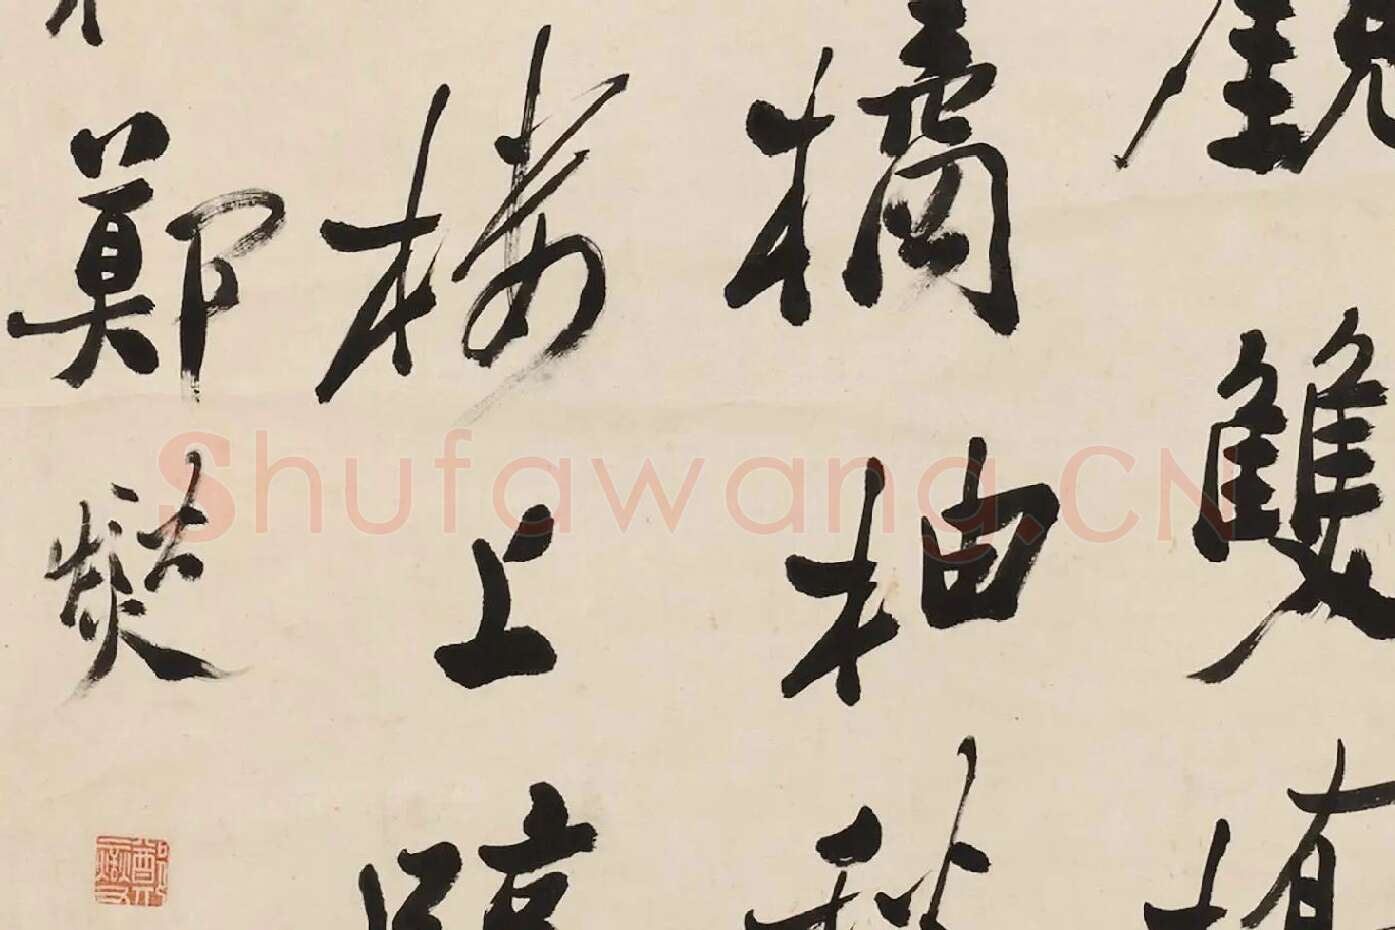 觀雙
橘柚秋
樓上
鄭燮
Shufawang.CN